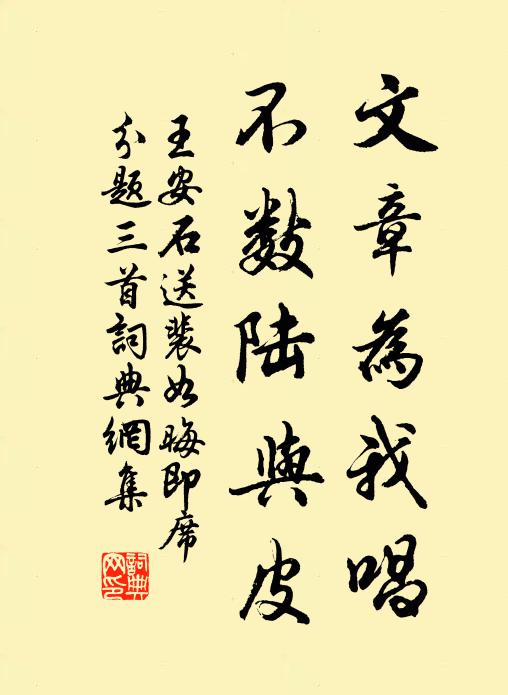 文章為我唱
不数陆與皮
王安石送裴如晦即席
分题三首詞典網集
詞典網印